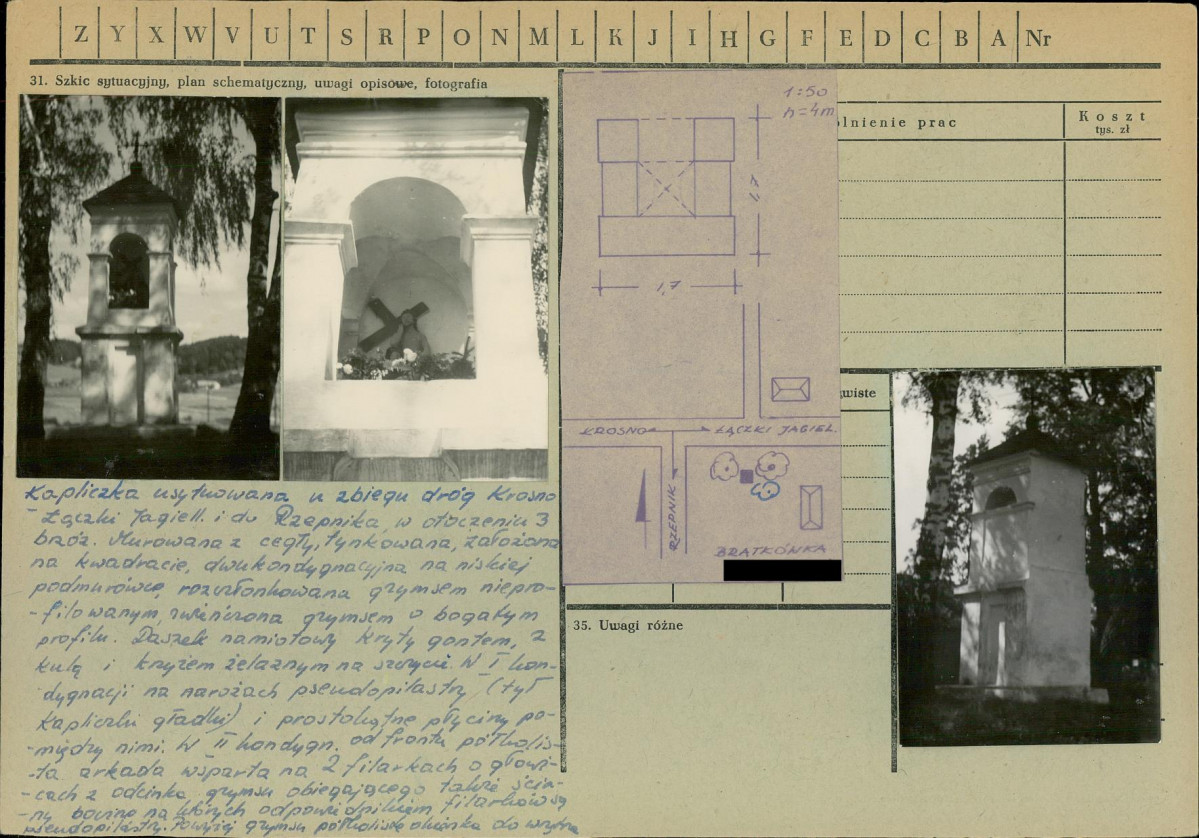 Z Y X W V U T S R P O N M L K J I H G F E D C B A Nr
31. Szkic sytuacyjny, plan schematyczny, uwagi opisowe, fotografia
1:50
h=4m
1,7
1,7
KROSNO
ŁĄCZKI JAGIEL.
RZEPNIK
BRATKÓWKA
olnienie prac
Koszt
tys. zł
wiste
35. Uwagi różne
Kapliczka usytuowana u zbiegu dróg Krosno
- Łączki Jagiell. i do Rzepnika, w otoczeniu 3
brzóz. Murowana z cegły, tynkowana, założona
na kwadracie, dwukondygnacyjna na niskiej
podmurówce, rozczłonkowana gzymsem niepro-
-filowanym, zwieńczona gzymsem o bogatym
profilu. Daszek namiotowy kryty gontem, z
kulą i krzyżem żelaznym na szczycie. W I kon-
dygnacji na narożach pseudopilastry (tył
kapliczki gładki) i prostokątne płyciny po-
-między nimi. W II kondygn. od frontu półkolis-
-ta arkada wsparta na 2 filarkach o głowi-
-cach z odcinka gzymsu obiegającego także ścia-
-ny boczne na których odpowiednikiem filarków są
pseudopilastry. Powyżej gzymsu półkoliste okienka do wnętrza